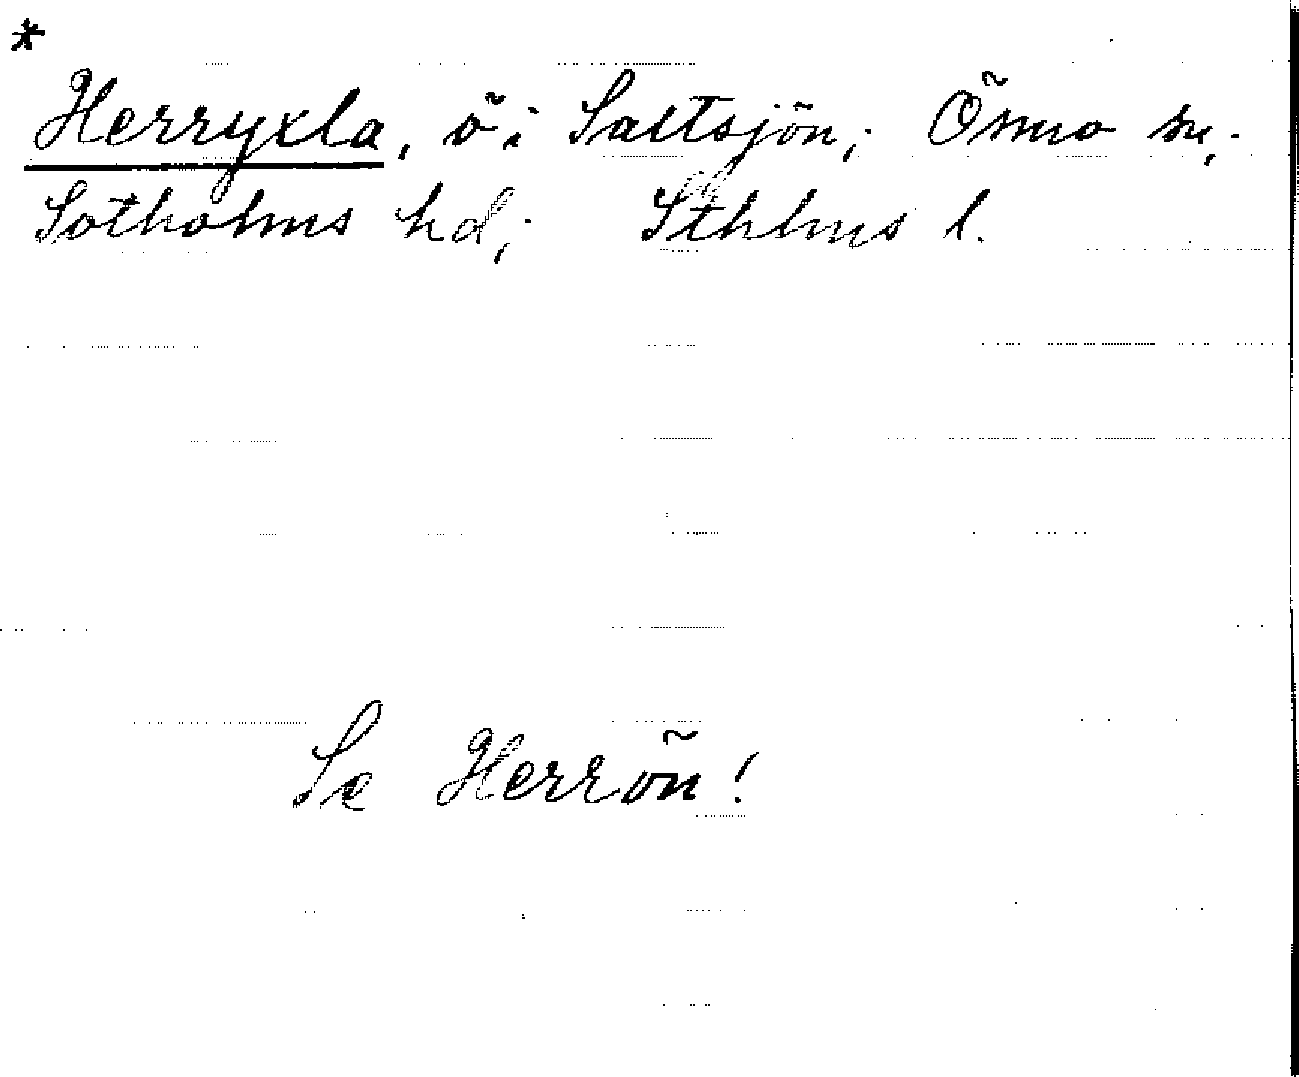 *
Herryxla, ö i Saltsjön; Ösmo sn;
Sotholms hd; Sthlms l.
Se Herrön!